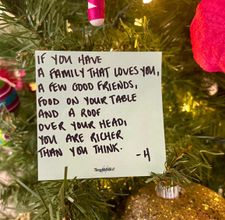 IF YOU HAVE
A FAMILY THAT LOVES YOU,
A FEW GOOD FRIENDS,
FOOD ON YOUR TABLE
AND A ROOF
OVER YOUR HEAD,
YOU ARE RICHER
THAN YOU THINK.
-H